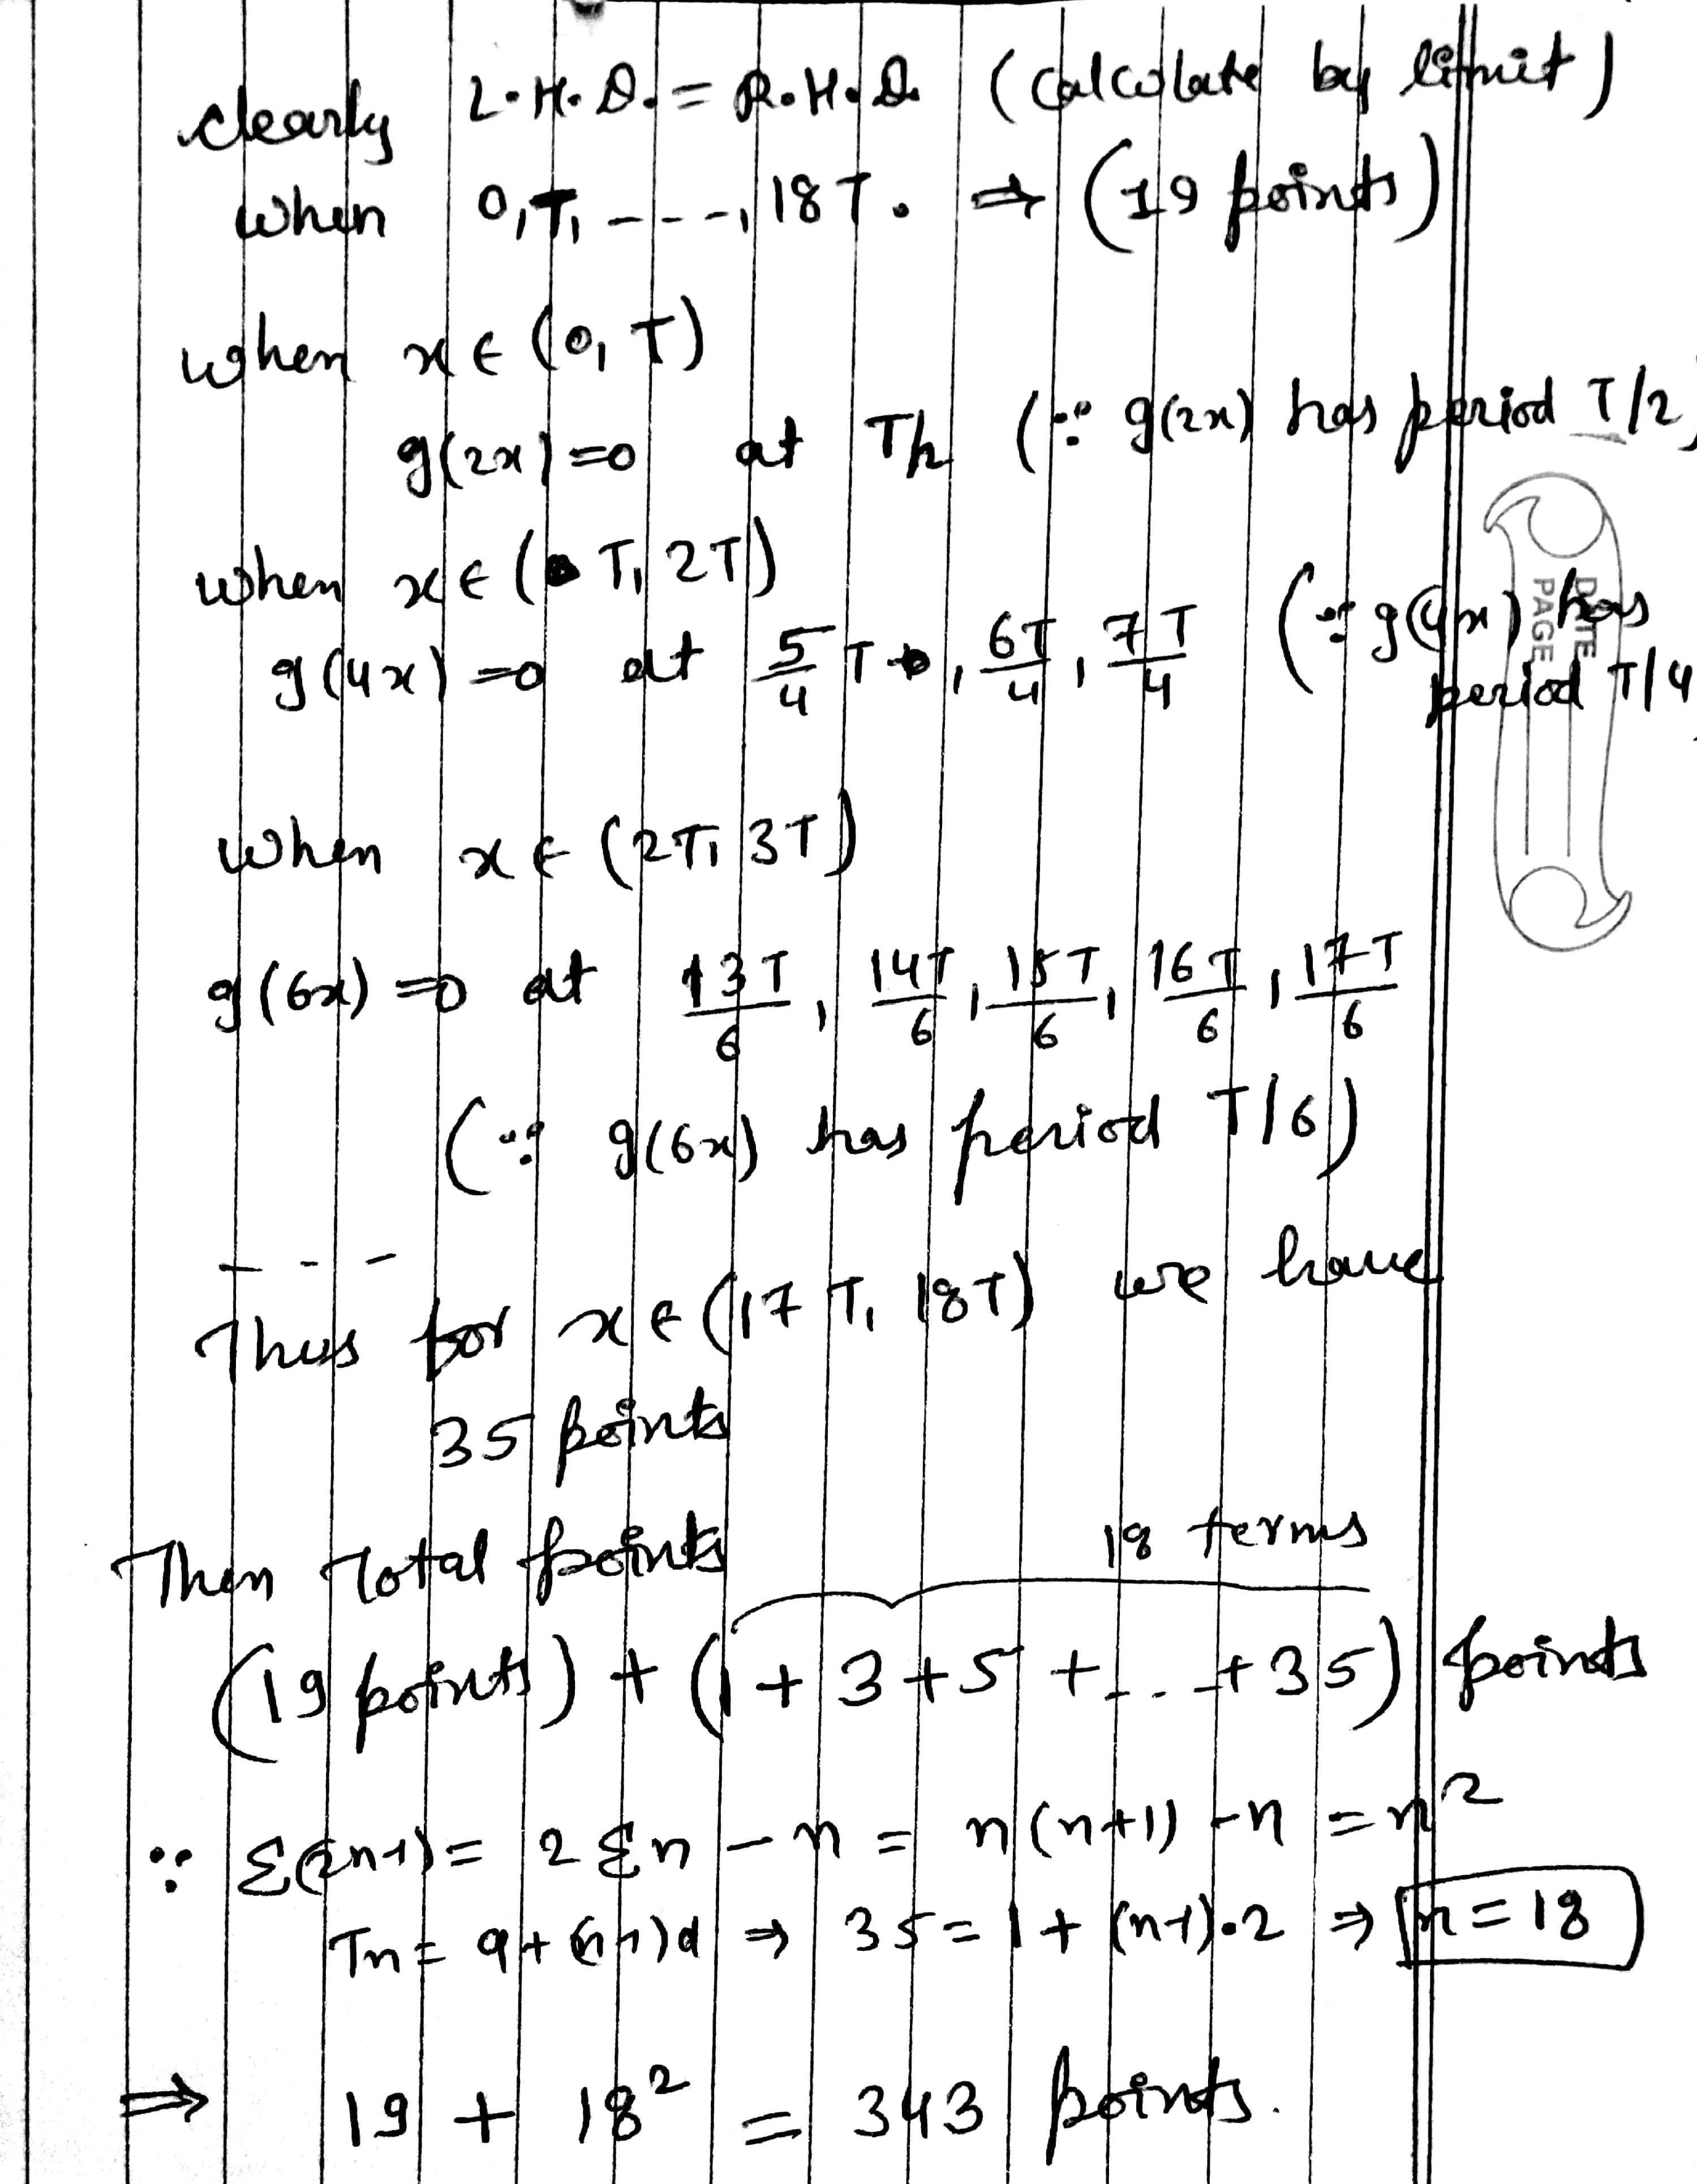 clearly L.H.D. = R.H.D. (Calculate by limit)
when 0, T, ----, 18T. ⇒ (19 points)
when x ∈ (0, T)
g(2x) = 0 at T/2 (∵ g(2x) has period T/2)
when x ∈ (T, 2T)
g(4x) = 0 at 5/4 T, 6T/4, 7T/4 (∵ g(4x) has period T/4)
DATE
PAGE
when x ∈ (2T, 3T)
g(6x) = 0 at 13T/6, 14T/6, 15T/6, 16T/6, 17T/6
(∵ g(6x) has period T/6)
- - -
Thus for x ∈ (17T, 18T) we have
35 points
Then Total points
18 terms
(19 points) + (1 + 3 + 5 + ... + 35) points
∵ Σ(2n-1) = 2Σn - n = n(n+1) - n = n²
Tn = a + (n-1)d ⇒ 35 = 1 + (n-1)·2 ⇒ n = 18
⇒ 19 + 18² = 343 points.